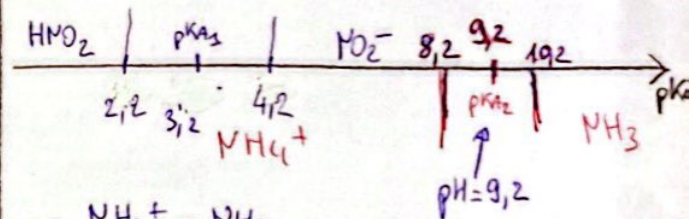 HNO₂ pKA1 NO₂⁻ 8,2 9,2 10,2
2,2 3,2 4,2 pKA2
NH₄⁺ NH₃
pH=9,2
NH₄⁺ NH₃